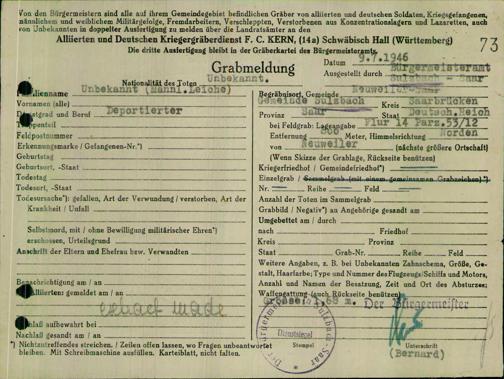 Von den Bürgermeistern sind alle auf ihrem Gemeindegebiet befindlichen Gräber von alliierten und deutschen Soldaten, Kriegsgefangenen,
männlichem und weiblichem Militärgefolge, Fremdarbeitern, Verschleppten, Verstorbenen aus Konzentrationslagern und Lazaretten, auch
von Unbekannten in doppelter Ausfertigung zu melden über die Landratsämter an den
Alliierten und Deutschen Kriegsgräberdienst F. C. KERN, (14a) Schwäbisch Hall (Württemberg)
Die dritte Ausfertigung bleibt in der Gräberkartei des Bürgermeisteramts.
73
Grabmeldung
Datum 9.7.1946
Ausgestellt durch Bürgermeisteramt
Sulzbach - Saar
Nationalität des Toten Unbekannt.
Familienname Unbekannt (Männl.Leiche)
Vornamen (alle)
Dienstgrad und Beruf Deportierter
Truppenteil
Feldpostnummer
Erkennungsmarke / Gefangenen-Nr.*)
Geburtstag
Geburtsort, -Staat
Todestag
Todesort, -Staat
Todesursache*): gefallen, Art der Verwundung / verstorben, Art der
Krankheit / Unfall
Selbstmord, mit / ohne Bewilligung militärischer Ehren*)
erschossen, Urteilsgrund
Anschrift der Eltern und Ehefrau bzw. Verwandten
Benachrichtigung am / an
Alliierten gemeldet am / an
extract made
Nachlaß aufbewahrt bei
Nachlaß gesandt am / an
*) Nichtzutreffendes streichen. / Zeilen offen lassen, wo Fragen unbeantwortet
bleiben. Mit Schreibmaschine ausfüllen. Karteiblatt, nicht falten.
Begräbnisort, Gemeinde Neuweiler-Saar
Gemeinde Sulzbach Kreis Saarbrücken
Provinz Saar Staat Deutsch.Reich
bei Feldgrab: Lageangabe Flur 14 Parz.53/12
Entfernung 800 Meter, Himmelsrichtung Norden
von Neuweiler (nächste größere Ortschaft)
(Wenn Skizze der Grablage, Rückseite benützen)
Kriegerfriedhof / Gemeindefriedhof*)
Einzelgrab / Sammelgrab (mit einem gemeinsamen Grabzeichen)*)
Nr. Reihe Feld
Anzahl der Toten im Sammelgrab
Grabbild / Negativ*) an Angehörige gesandt am
Umgebettet am / durch
nach Friedhof
Kreis Provinz
Staat Grab-Nr. Reihe Feld
Weitere Angaben, z. B. bei Unbekannten Zahnschema, Größe, Ge-
stalt, Haarfarbe; Type und Nummer des Flugzeugs/Schiffs und Motors,
Anzahl und Namen der Besatzung, Zeit und Ort des Absturzes;
Waffengattung (auch Rückseite benützen)
Grösse: 1,68 m. Der Bürgermeister
Dienstsiegel
Stempel
Unterschrift
(Bernard)